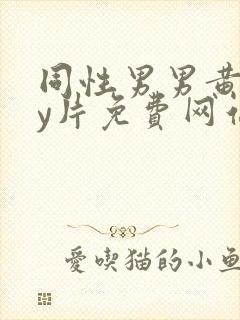 同性男男黄
y片免费网
爱喫猫的小鱼